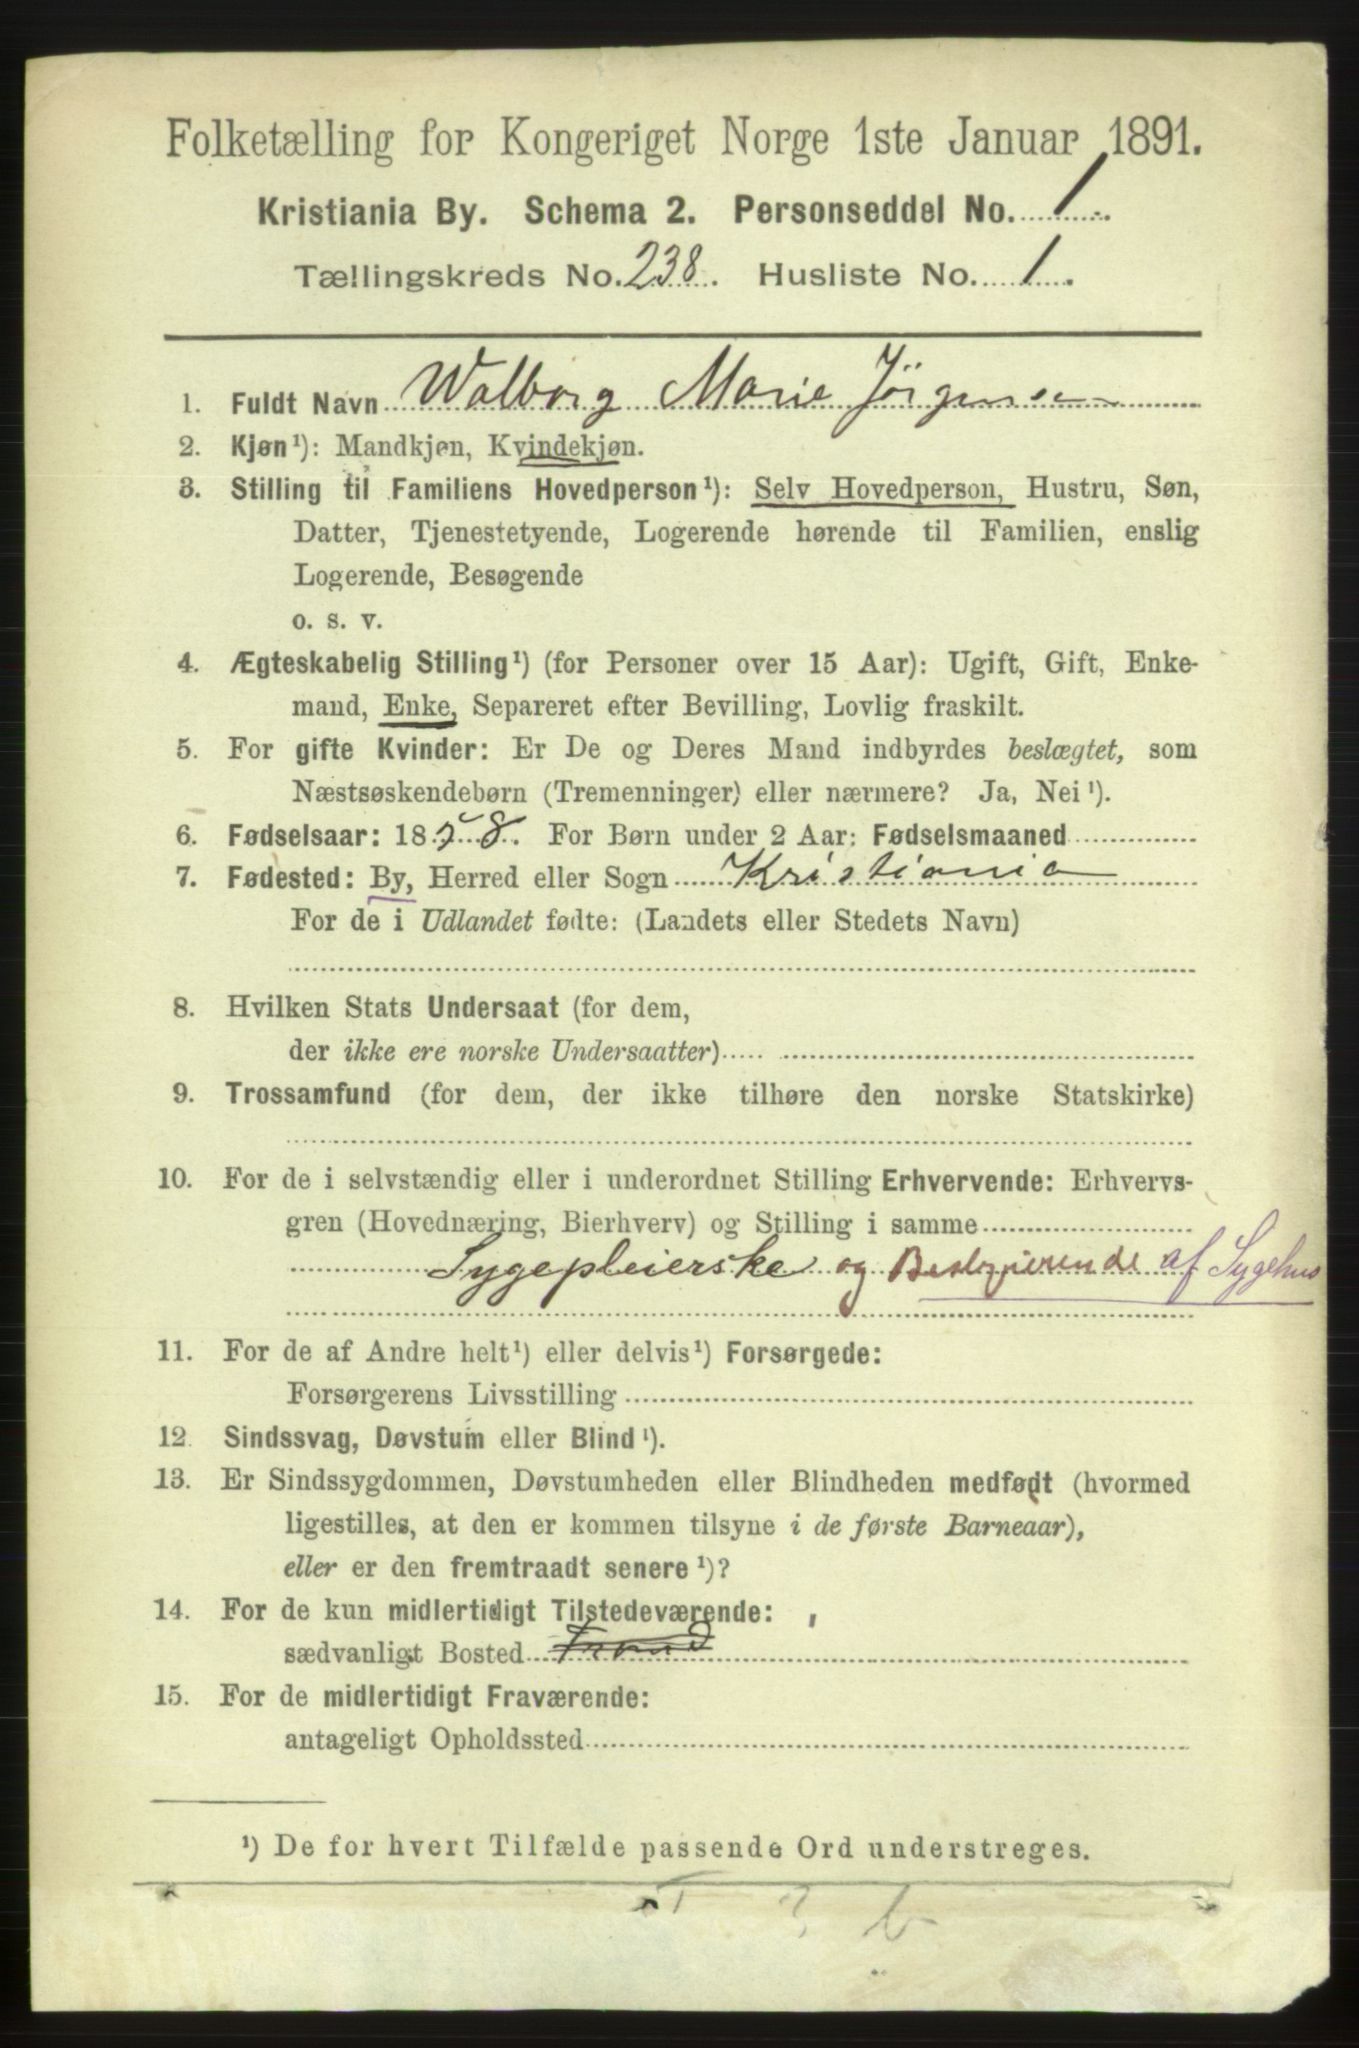 Folketælling for Kongeriget Norge 1ste Januar 1891.
Kristiania By. Schema 2. Personseddel No. 1.
Tællingskreds No. 238. Husliste No. 1.
1. Fuldt Navn Walborg Marie Jörgensen
2. Kjøn¹): Mandkjøn, Kvindekjøn.
3. Stilling til Familiens Hovedperson¹): Selv Hovedperson, Hustru, Søn,
Datter, Tjenestetyende, Logerende hørende til Familien, enslig
Logerende, Besøgende
o. s. v.
4. Ægteskabelig Stilling¹) (for Personer over 15 Aar): Ugift, Gift, Enke-
mand, Enke, Separeret efter Bevilling, Lovlig fraskilt.
5. For gifte Kvinder: Er De og Deres Mand indbyrdes beslægtet, som
Næstsøskendebørn (Tremenninger) eller nærmere? Ja, Nei¹).
6. Fødselsaar: 1858. For Børn under 2 Aar: Fødselsmaaned
7. Fødested: By, Herred eller Sogn Kristiania
For de i Udlandet fødte: (Landets eller Stedets Navn)
8. Hvilken Stats Undersaat (for dem,
der ikke ere norske Undersaatter)
9. Trossamfund (for dem, der ikke tilhøre den norske Statskirke)
10. For de i selvstændig eller i underordnet Stilling Erhvervende: Erhvervs-
gren (Hovednæring, Bierhverv) og Stilling i samme
Sygepleierske og af Sygehus
11. For de af Andre helt¹) eller delvis¹) Forsørgede:
Forsørgerens Livsstilling
12. Sindssvag, Døvstum eller Blind¹).
13. Er Sindssygdommen, Døvstumheden eller Blindheden medfødt (hvormed
ligestilles, at den er kommen tilsyne i de første Barneaar),
eller er den fremtraadt senere¹)?
14. For de kun midlertidigt Tilstedeværende:
sædvanligt Bosted
15. For de midlertidigt Fraværende:
antageligt Opholdssted
¹) De for hvert Tilfælde passende Ord understreges.